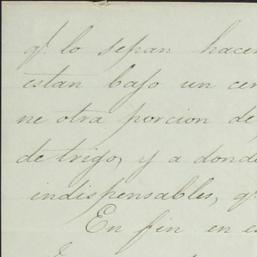 q.e lo sepan hacer
estan bajo un
ne otra porcion de
de trigo, y a donde
indispensables, q
En fin en